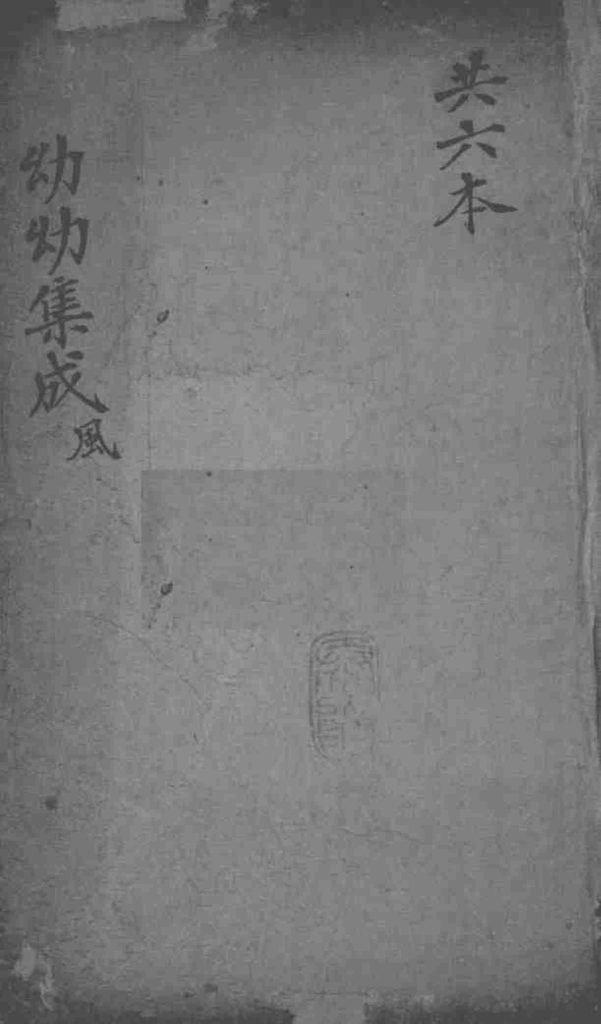 共六本
幼幼集成 風